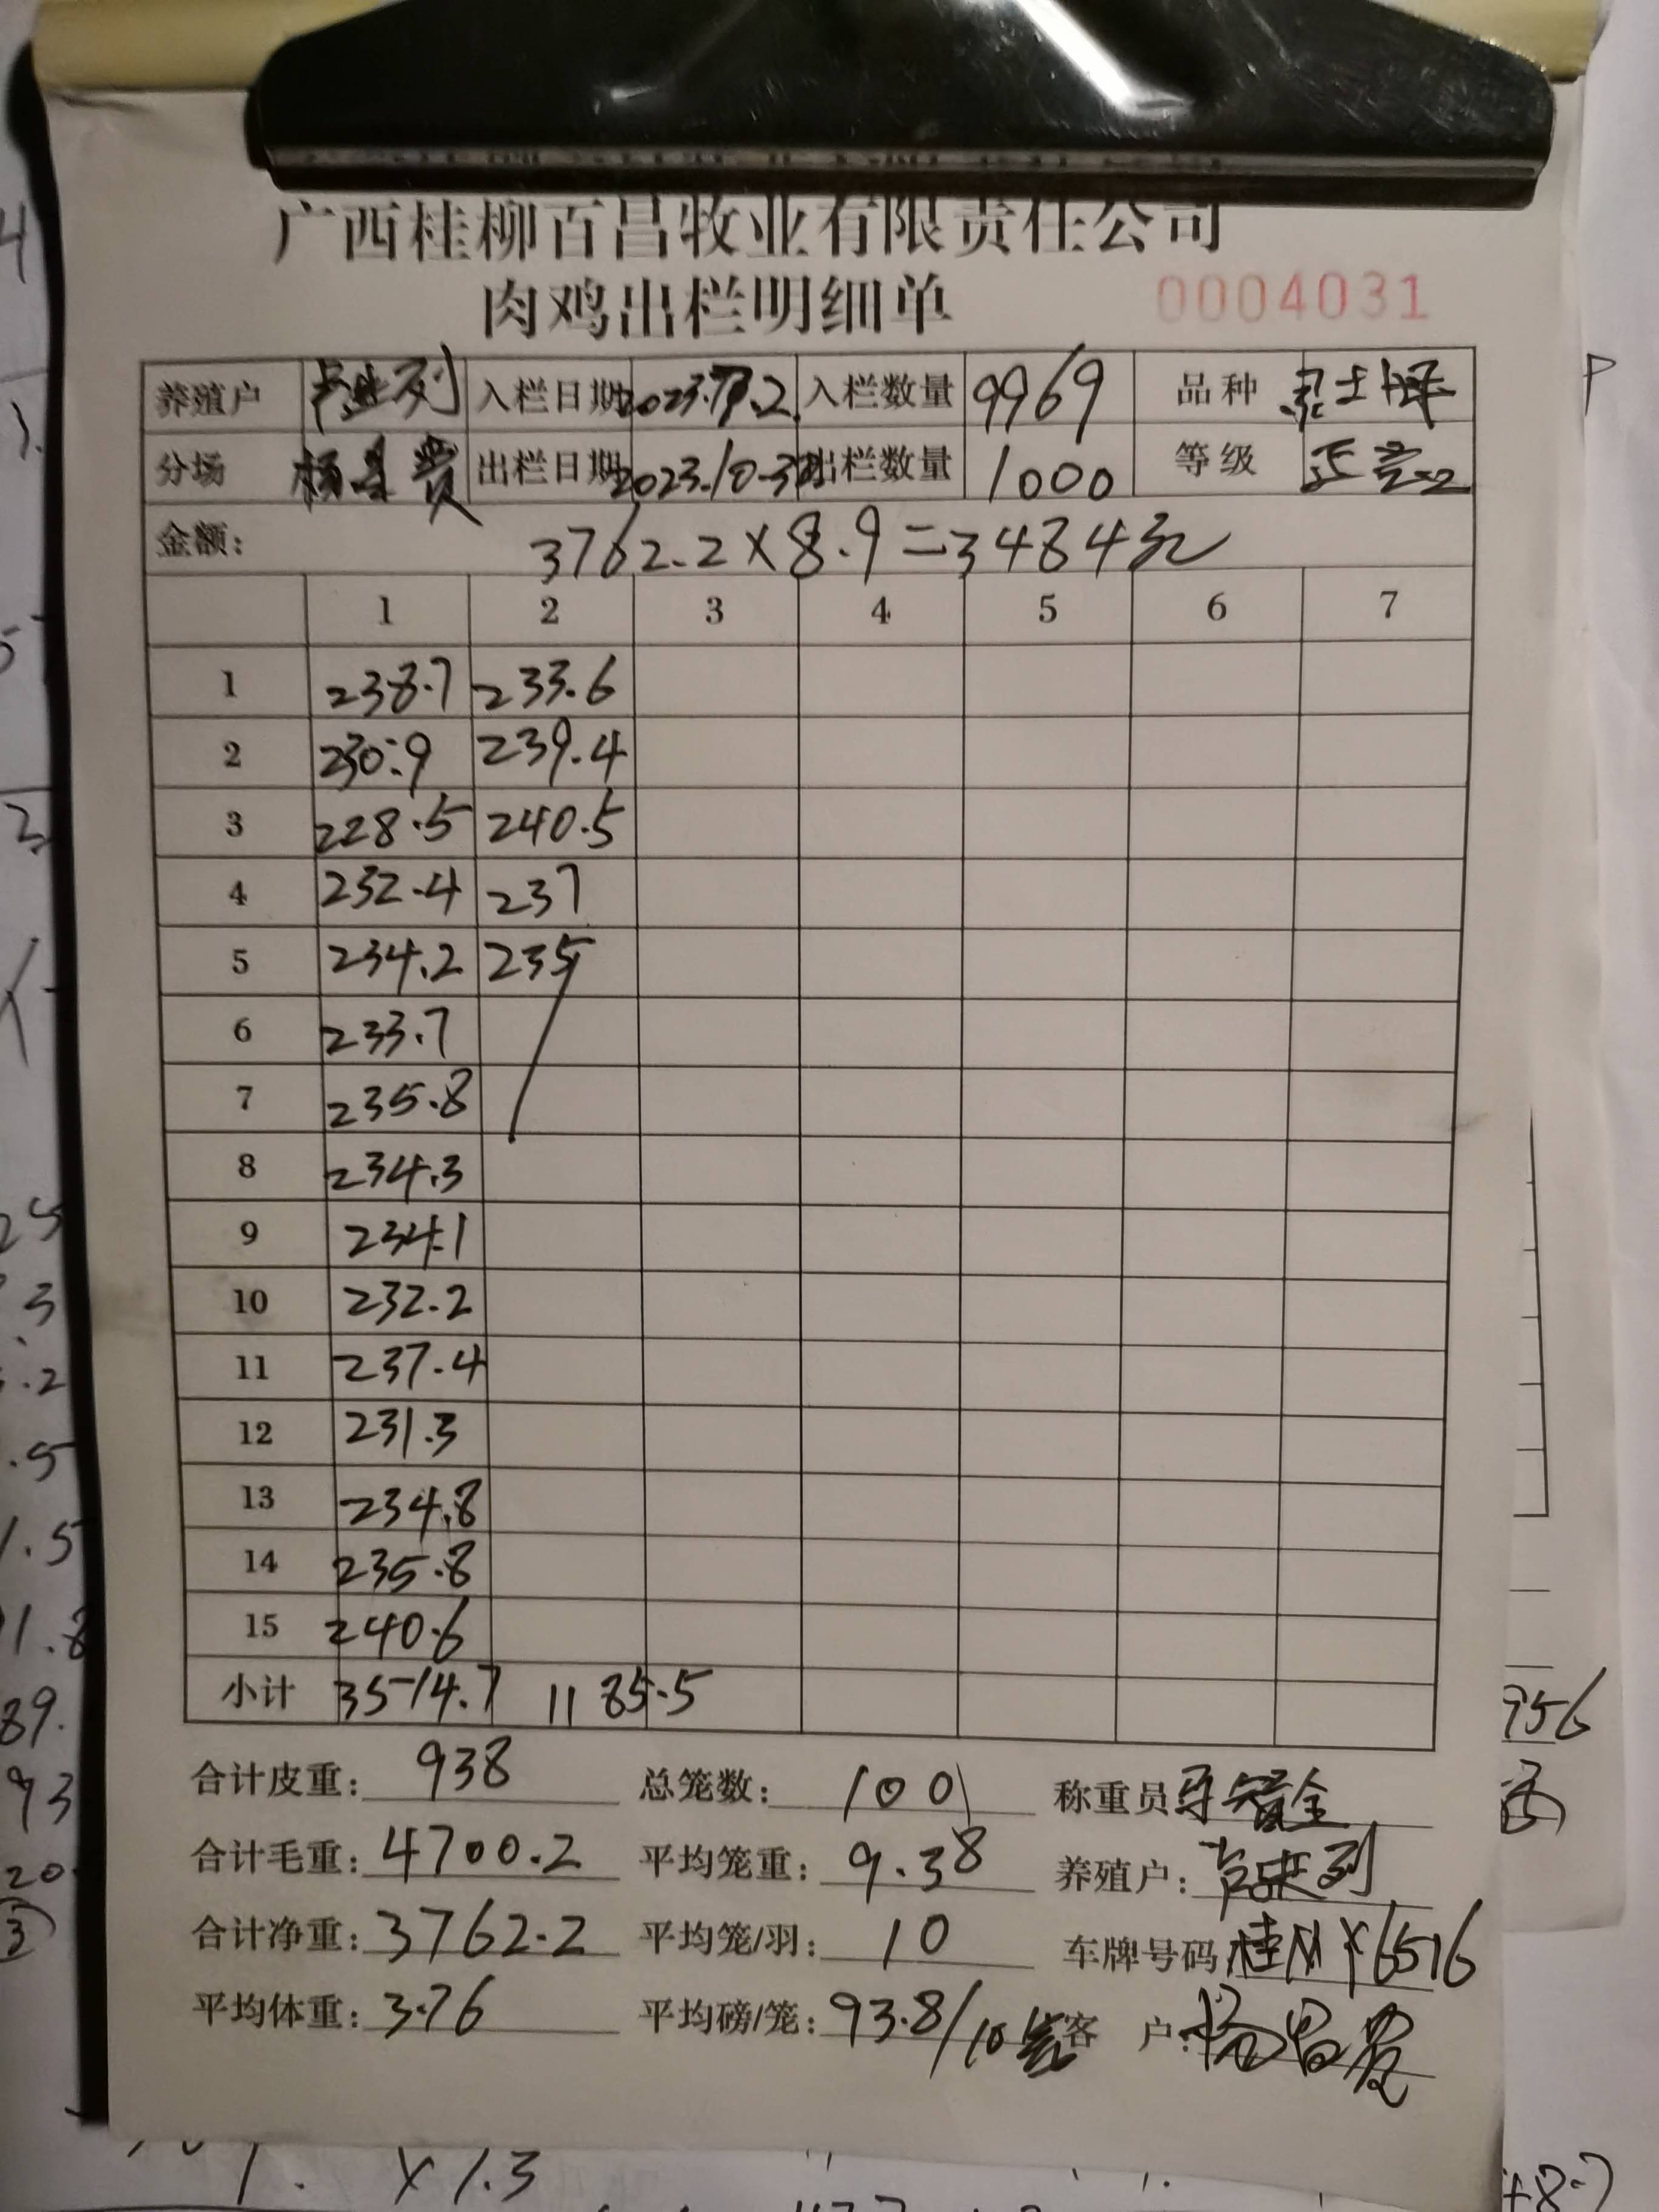 广西桂柳百昌牧业有限责任公司
肉鸡出栏明细单 0004031
养殖户 入栏日期 入栏数量 9969 品种
分场 出栏日期 2023.10.30 出栏数量 1000 等级
金额: 3762.2×8.9=3484元
1 2 3 4 5 6 7
1 238.7 233.6
2 230.9 239.4
3 228.5 240.5
4 232.4 237
5 234.2 235
6 233.7
7 235.8
8 234.3
9 234.1
10 232.2
11 237.4
12 231.3
13 234.8
14 235.8
15 240.6
小计 3514.7 1185.5
合计皮重: 938 总笼数: 100 称重员
合计毛重: 4700.2 平均笼重: 9.38 养殖户:
合计净重: 3762.2 平均笼/羽: 10 车牌号码
平均体重: 3.76 平均磅/笼: 93.8/10 客户:
×1.3